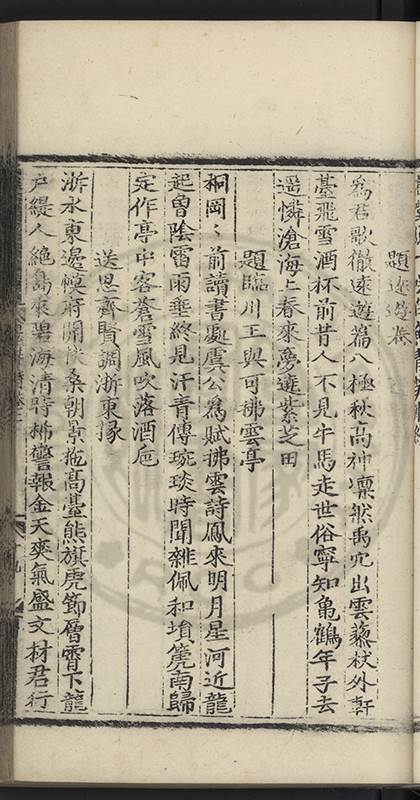 題遠遊卷
為君歌徹遠遊篇八極秋高神凛然禹穴出雲藜杖外軒
臺飛雪酒杯前昔人不見牛馬走世俗寧知龜鶴年子去
遥憐滄海上春來夢遶紫芝田
題臨川王與可拂雲亭
桐岡〻前讀書處虞公為賦拂雲詩鳳來明月星河近龍
起曾陰雷雨垂終見汗青傳琬琰時聞雜佩和塤篪南歸
定作亭中客蒼雪風吹落酒巵
送思齊賢調浙東掾
浙水東邊幙府開扶桑朝景拖高臺熊旗虎節層霄下龍
戶緹人絶島來碧海清時稀警報金天爽氣盛文材君行